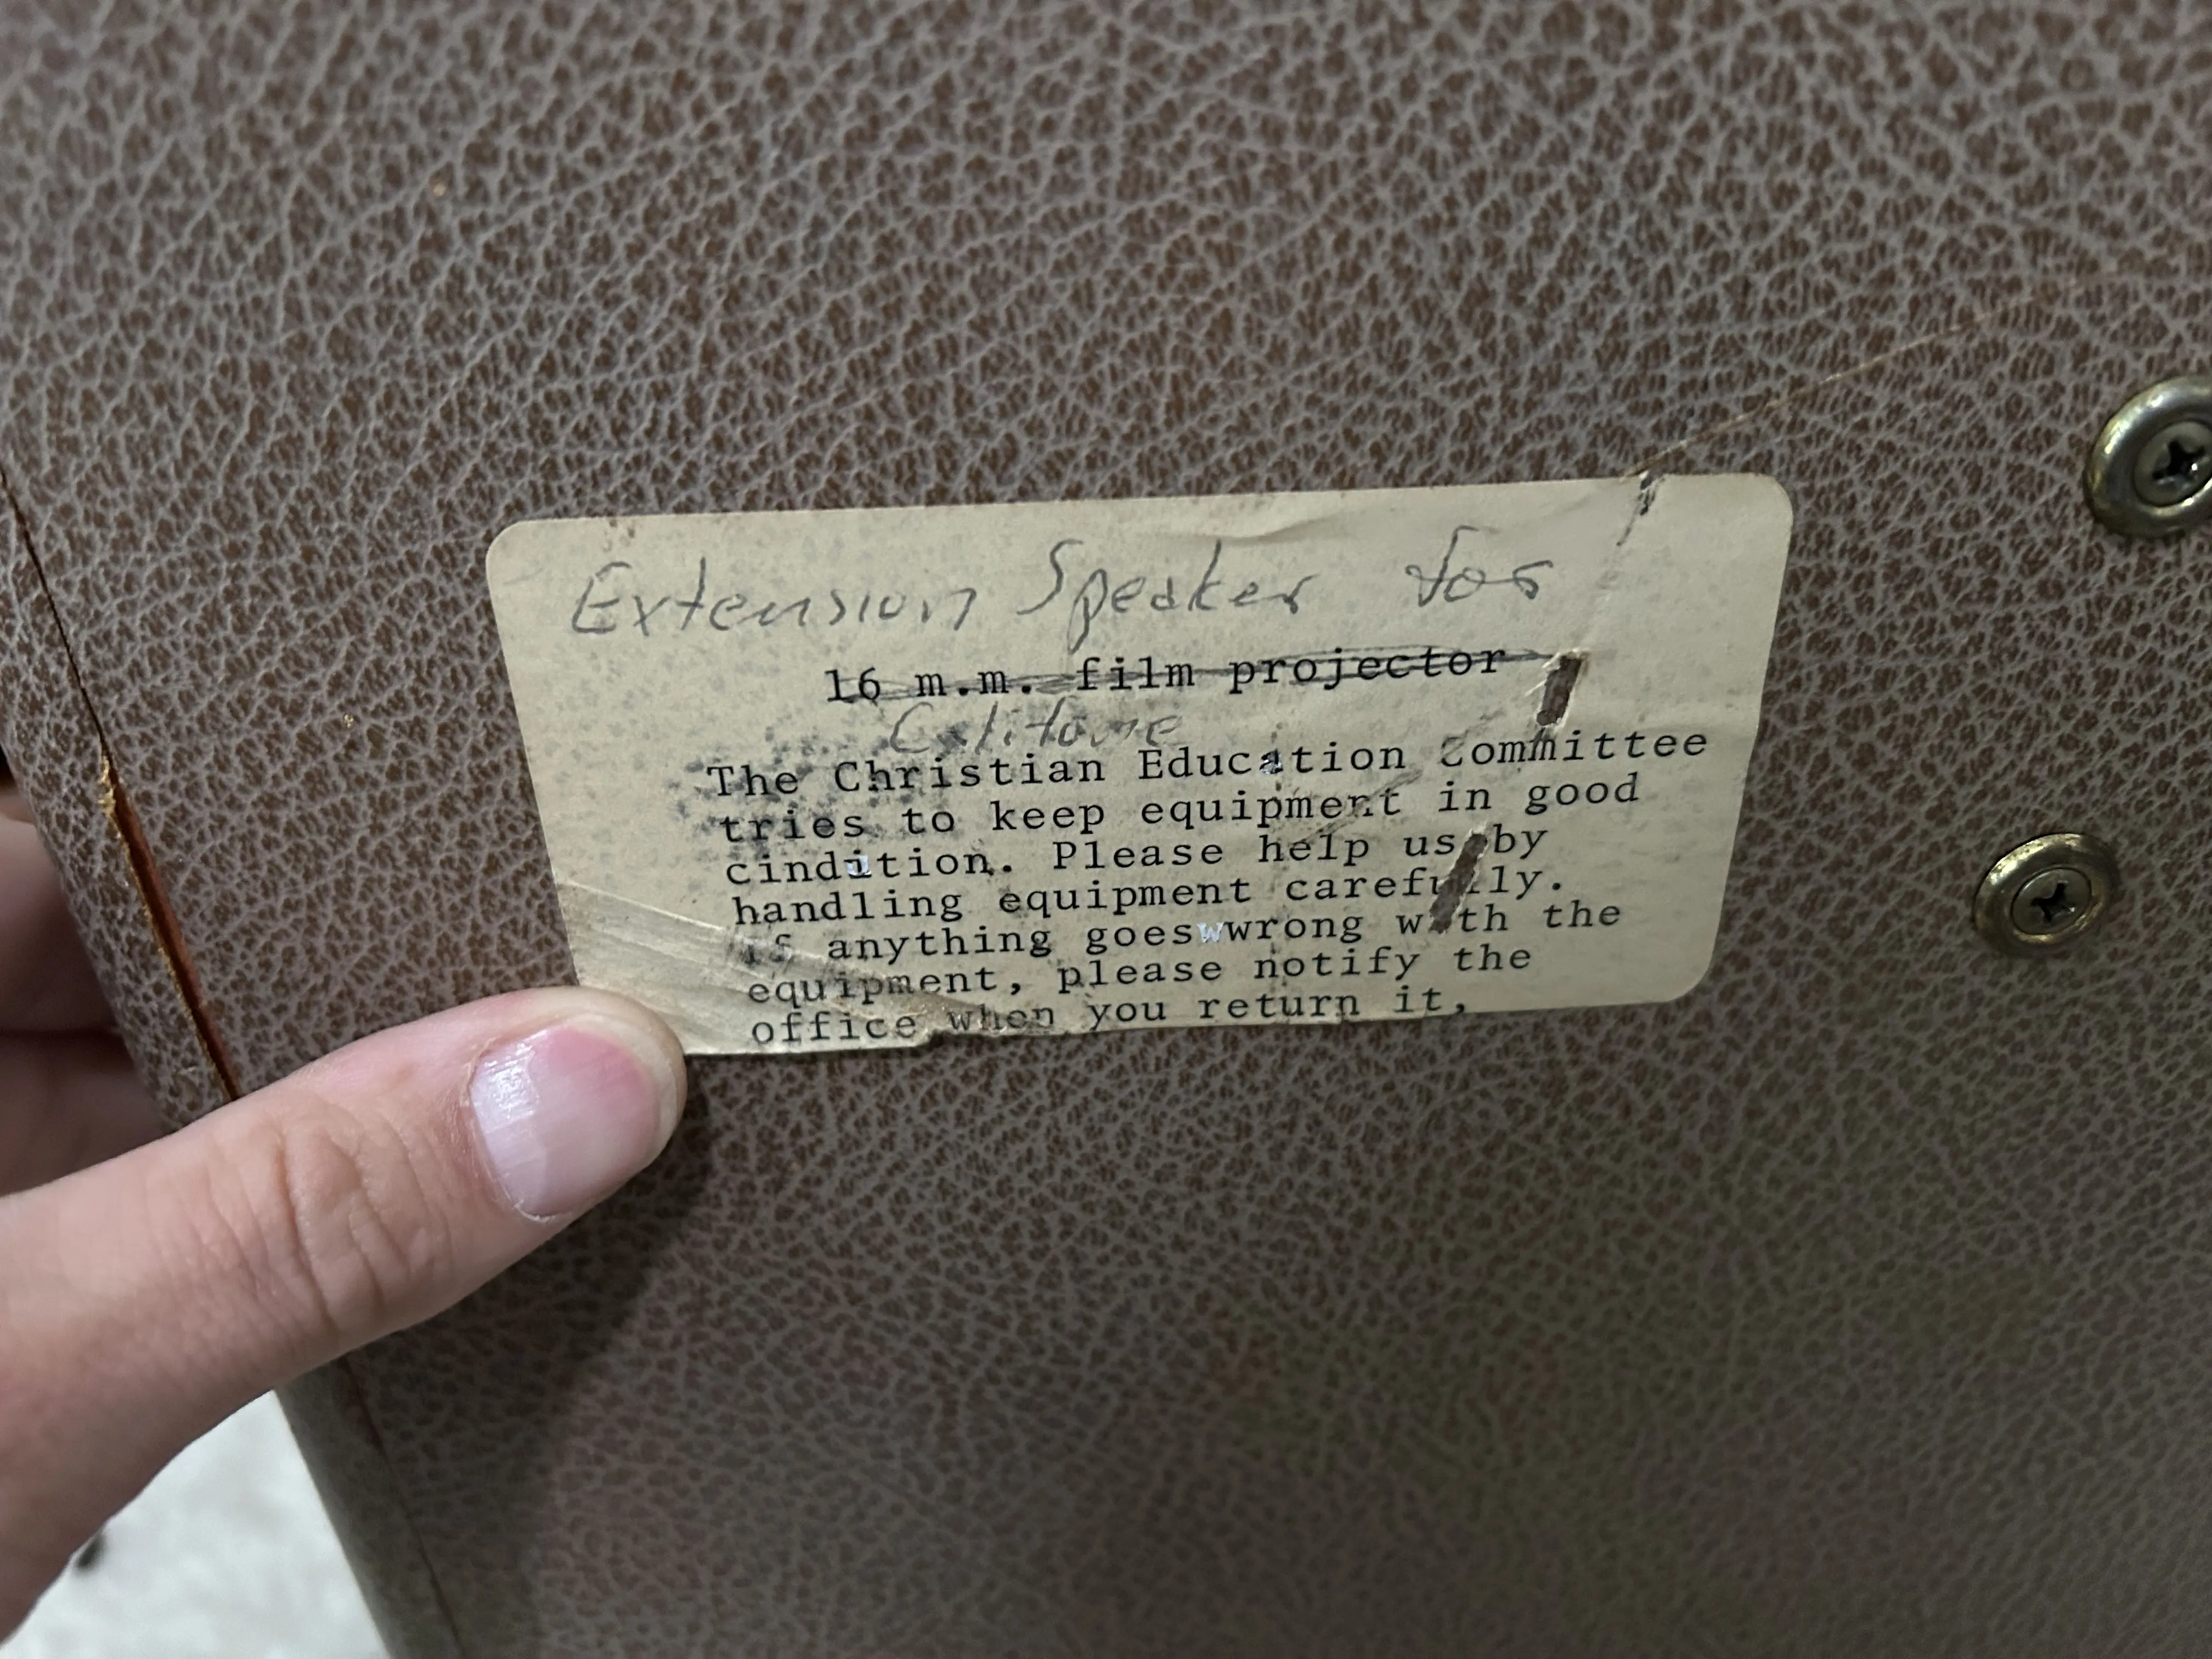 Extension Speaker for
16 m.m. film projector
Califone
The Christian Education Committee
tries to keep equipment in good
cindition. Please help us by
handling equipment carefully.
if anything goeswwrong with the
equipment, please notify the
office when you return it,